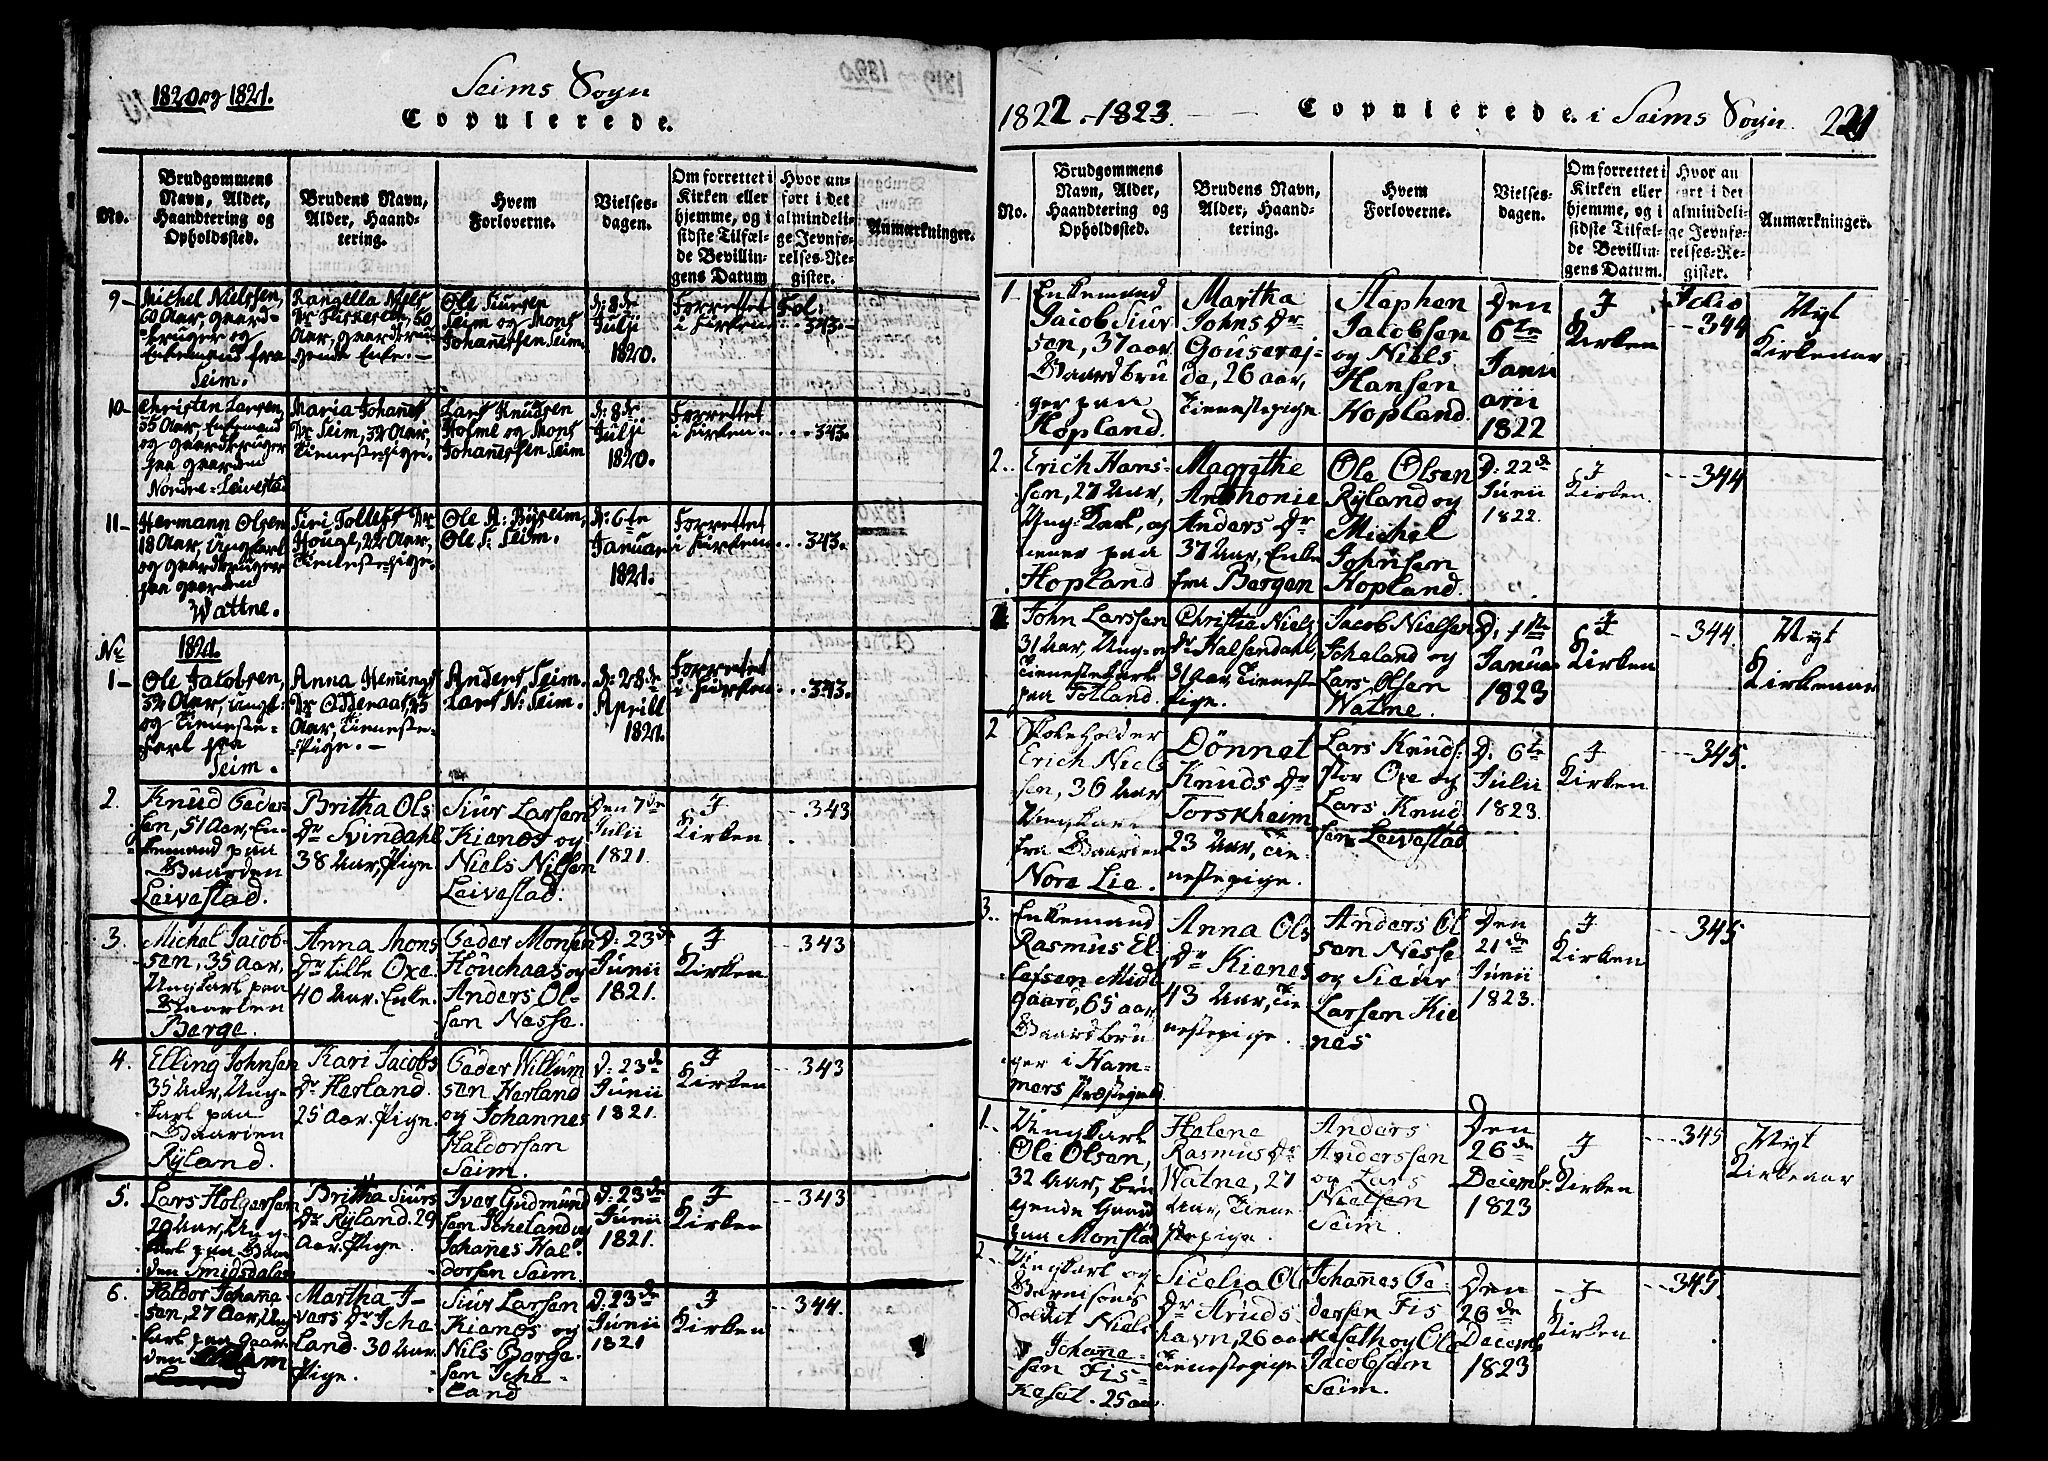 1820 og 1821.
Seims Sogn
Copulerede.
No.
Brudgommens Navn, Alder, Haandtering og Opholdssted.
Brudens Navn, Alder, Haandtering.
Hvem Forloverne.
Vielsesdagen.
Om forrettet i Kirken eller hjemme, og i sidste Tilfælde Bevillingens Datum
Hvor anført i det almindelige Jevnførelses-Register.
Anmærkninger.
9 -
Michel Nielssen,
60 Aar, gaard-
bruger og
Enkemand fra
Seim.
Rangella Niels
Dr Fiskeseth, 60
Aar, gaardbru
gende Enke. -
Ole Siursen
Seim og Mons
Johannessen Seim.
d: 8de
Julji
1820.
Forrettet
i Kirken
Fol:
343.
10 -
Christen Larsen,
35 Aar, Enkemand
og gaardbruger
paa gaarden
Nordre-Leivestad
Maria Johannes
Dr Seim, 32 Aar,
Tienestepige.
Lars Knudsen
Holme og Mons
Johannessen Seim
d: 8de
Julji
1820.
Forrettet
i Kirken
343.
11 -
Hermann Olsen
18 Aar, Ungkarl
og gaardbruger
paa gaarden
Wattne.
Siri Tollefs Dr
Houge, 22 Aar,
Tienestepige.
Ole A: Byseim,
Ole S: Seim.
d: 6te
Januar
1821.
Forrettet
i Kirken
343.
No
1821.
1 -
Ole Jacobsen,
32 Aar, ungk-
og Tieneste-
karl paa
Seim.
Anna Hemings
Dr Odderaat, 23
Aar, Tieneste-
Pige. -
Anders Seim.
Lars N: Seim.
d: 28de
Aprill
1821.
Forretet
i Kirken
343.
2.
Knud Peder-
sen, 51 Aar, En-
kemand paa
Gaarden
Leivestad.
Britha Ols
Dr Svindahl
38 Aar, Pige
Siur Larsen
Kianes og
Niels Nilsen
Leivestad.
Den 7de
Julii
1821.
I
Kirken
343
3.
Michel Jacob-
sen, 35 Aar,
Ungkarl paa
Gaarden
Berge.
Anna Mons
Dr lille Oxe.
40 Aar. Enke.
Peder Monsen
Houchaas og
Anders Ol-
sen Nesse.
D: 23de
Junii
1821.
I
Kirken
343
4.
Elling Johnsen
35 Aar, Ung-
karl paa
Gaarden
Ryland.
Kari Jacobs
Dr Herland.
25 Aar. Pige.
Peder Willum
sen Herland
og Johannes
Haldorsen
Seim.
D: 23de
Junii
1821.
I
Kirken
343
5.
Lars Holgersen
29 Aar, Ung-
karl paa Gaar
den Smidsdalen
Britha Siurs
Dr Ryland. 29
Aar. Pige.
Ivar Gudmund
sen Ischeland og
Johannes Hal-
dorsen Seim.
D: 23de
Junii
1821.
I
Kirken
343
6.
Haldor Johanne
sen, 27 Aar, Ung
karl paa Gaar-
den
Martha I-
vars Dr Ische
land. 30 Aar.
Pige.
Siur Larsen
Kianes og
Nils Børge-
sen Ische-
land
D: 23de
Junii
1821
I
Kirken
344.
1822 - 1823.
Copulerede. i Seims Sogn.
221
No.
Brudgommens Navn, Alder, Haandtering og Opholdssted.
Brudens Navn, Alder, Haandtering.
Hvem Forloverne.
Vielsesdagen.
Om forrettet i Kirken eller hjemme, og i sidste Tilfælde Bevillingens Datum.
Hvor anført i det almindelige Jevnførelses-Register.
Anmærkninger.
1
Enkemand
Jacob Siur
sen, 37 aar
Gaardbru
ger paa
Hopland.
Martha
Johns Dr
Gouseraj-
de, 26 aar,
Tienestepige
Stephen
Jacobsen
og Niels
Hansen
Hopland.
Den
6te
Janu
arii
1822
I
Kirken
Folio
344
Nyt
Kirkeaar
2..
Erich Hans-
sen, 27 Aar,
Ung-Karl, og
tiener paa
Hopland
Magrethe
Anthonie
Anders Dr
37 Aar, Enke
fra Bergen
Ole Olsen
Ryland og
Michel
Johnsen
Hopland.
D: 22de
Junii
1822.
I
Kirken.
344
1
John Larssen
31 Aar, Ung- og
Tienestekarl
paa Totland.
Christie Niels
Dr Halsendahl,
31 Aar, Tieneste
pige.
Jacob Nielsen
Ischeland og
Lars Olsen
Watne.
D: 1ste
Janua
1823
I
Kirken
344.
Nyt
Kirkeaar
2
Skoleholder
Erich Niel
sen, 36 Aar
Ungkarl
fra Gaarden
Nore Lie.
Dönnet
Knuds Dr
Torskheim
23 Aar, Tie-
nestepige.
Lars Knuds:
stor Oxe og
Lars Knud
sen Leivestad
D: 6te
Julii
1823.
I
Kirken
345.
3.
Enkemand
Rasmus El
lefsen Midt
gaard, 65 aar,
Gaardbru
ger i Ham-
mers Præstegield
Anna Ols
Dr Kianes
43 Aar, Tie-
nestepige.
Anders Ol
sen Nesse
og Sieur
Larsen Kie
nes
Den
21de
Junii
1823.
I
Kirken
345
1.
Ungkarl
Ole Olsen,
32 Aar, bru
gende Gaard
paa Monstad
Helene
Rasmus Dr
Watne, 27
Aar, Tiene
stepige.
Anders
Anderssen
og Lars
Nielsen
Seim.
Den
26de
Decembr.
1823
I
Kirken
345
Nyt
Kirkeaar
2
Ungkarl og
Garnisons
Soldat Niels
Johanne-
sen Fis-
keset. 25 aar
Sicelia Ol
Dr Struds
havn, 26 aar
Tienestepige
Johannes Pe-
dersen Fis
keseth og Ole
Jacobsen
Seim.
Den
26de
Decemb
1823
I
Kirken
345.